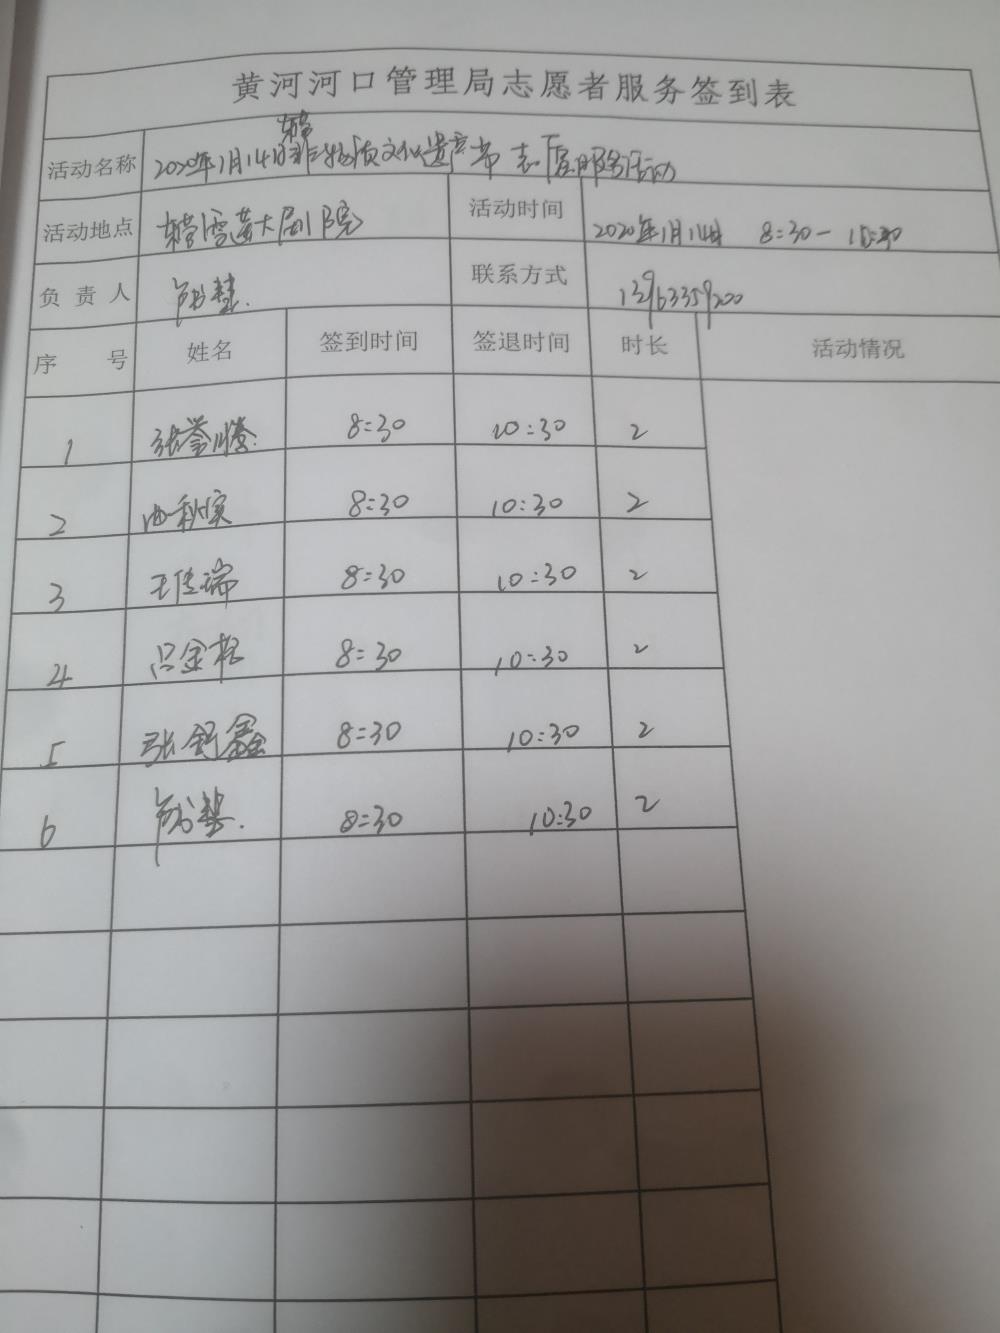 黄河河口管理局志愿者服务签到表
东营
活动名称 2020年1月14日非物质文化遗产节志愿服务活动
活动地点 东营雪莲大剧院 活动时间 2020年1月14日 8:30-10:30
负责人 联系方式 13963359200
序号 姓名 签到时间 签退时间 时长 活动情况
1 张誉腾 8:30 10:30 2
2 8:30 10:30 2
3 王佳瑞 8:30 10:30 2
4 吕金 8:30 10:30 2
5 张舒鑫 8:30 10:30 2
6 8:30 10:30 2